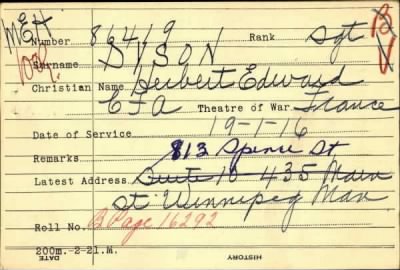 MEH
Number 86419 Rank Sgt B
Surname DYSON V
Christian Name Herbert Edward
CFA Theatre of War France
Date of Service 19-1-16
Remarks 813 Spence St
Latest Address Suite 10 435 Main
St Winnipeg Man
Roll No. B Page 16292
200m.-2-21.M. HISTORY